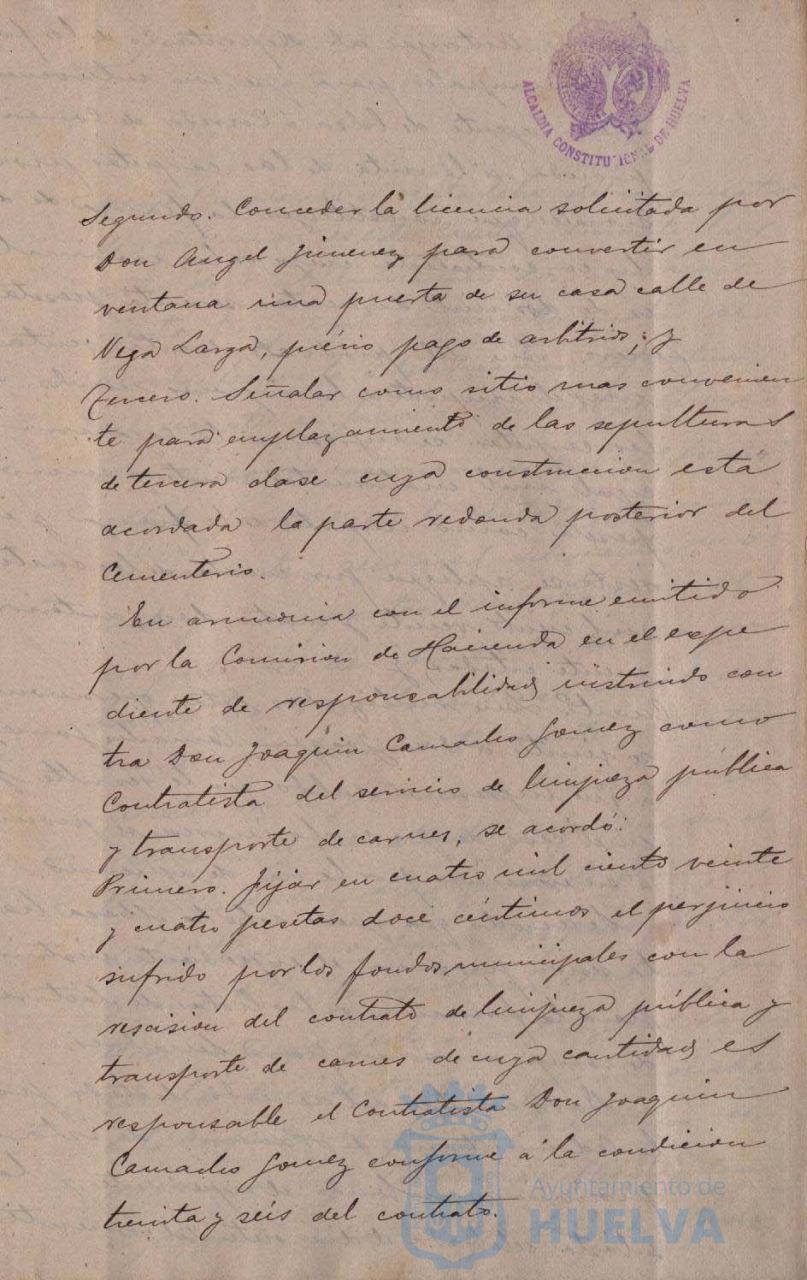 ALCALDIA CONSTITUCIONAL DE HUELVA
Segundo. Conceder la licencia solicitada por
Don Angel Jimenez para convertir en
ventana una puerta de su casa calle de
Vega Larga, prévio pago de arbitrios; y
Tercero. Señalar como sitio mas convenien
te para emplazamiento de las sepulturas
de tercera clase cuya construccion está
acordada la parte redonda posterior del
Cementerio.
En armonia con el informe emitido
por la Comision de Hacienda en el expe
diente de responsabilidad instruido con
tra Don Joaquin Camacho Gomez como
Contratista del servicio de limpieza pública
y transporte de carnes, se acordó:
Primero. Fijar en cuatro mil ciento veinte
y cuatro pesetas doce céntimos el perjuicio
sufrido por los fondos municipales con la
rescision del contrato de limpieza pública y
transporte de carnes de cuya cantidad es
responsable el Contratista Don Joaquin
Camacho Gomez conforme á la condicion
treinta y séis del contrato.
Ayuntamiento de
HUELVA